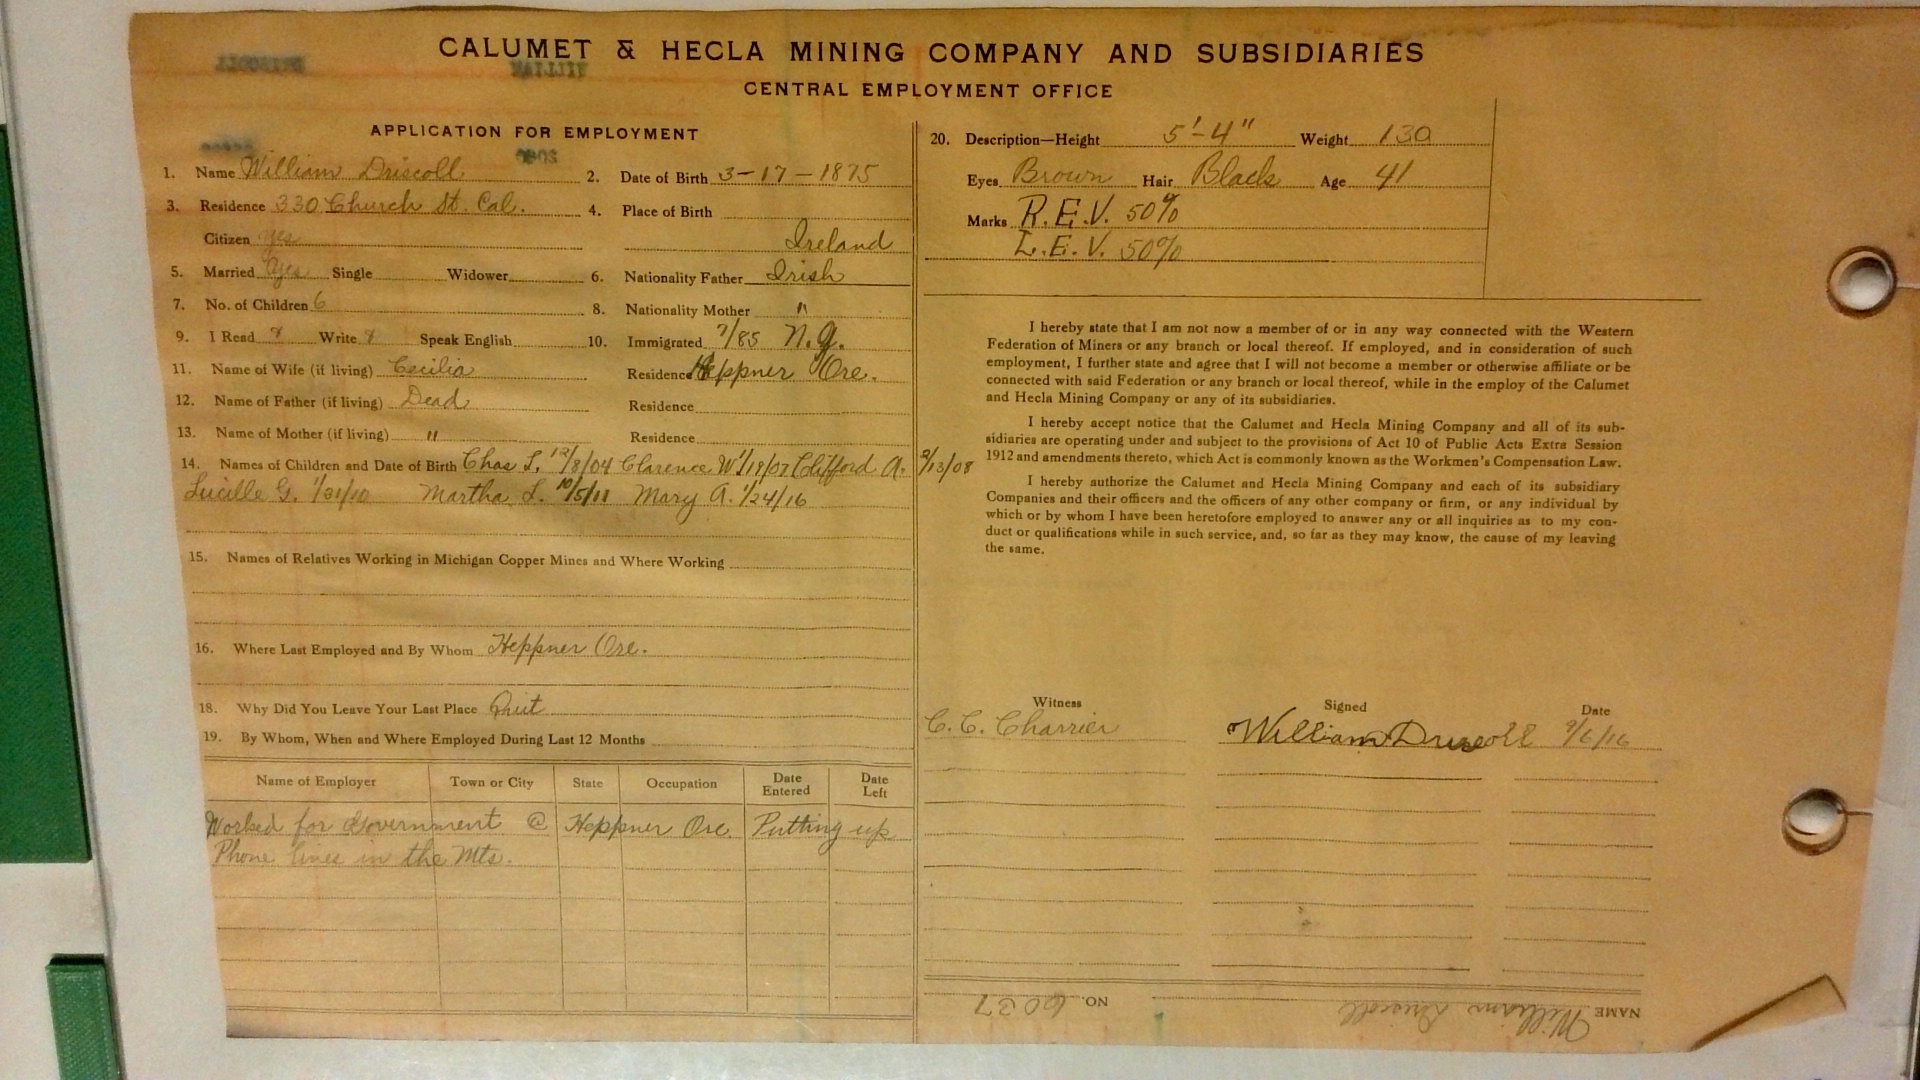 CALUMET & HECLA MINING COMPANY AND SUBSIDIARIES
CENTRAL EMPLOYMENT OFFICE
APPLICATION FOR EMPLOYMENT
1. Name William Driscoll 2. Date of Birth 3-17-1875
3. Residence 330 Church St. Cal. 4. Place of Birth
Citizen yes Ireland
5. Married yes Single Widower 6. Nationality Father Irish
7. No. of Children 6 8. Nationality Mother "
9. I Read Write Speak English 10. Immigrated 7/85 N.Y.
11. Name of Wife (if living) Cecilia Residence Heppner Ore.
12. Name of Father (if living) Dead Residence
13. Name of Mother (if living) " Residence
14. Names of Children and Date of Birth Chas L. 12/8/04 Clarence W. 1/19/07 Clifford A. 9/13/08
Lucille G. 1/31/10 Martha L. 10/5/11 Mary A. 1/24/16
15. Names of Relatives Working in Michigan Copper Mines and Where Working
16. Where Last Employed and By Whom Heppner Ore.
18. Why Did You Leave Your Last Place Quit
19. By Whom, When and Where Employed During Last 12 Months
Name of Employer Town or City State Occupation Date Entered Date Left
Worked for Government @ Heppner Ore. Putting up
Phone lines in the Mts.
20. Description—Height 5'-4" Weight 130
Eyes Brown Hair Black Age 41
Marks R.E.V. 50%
L.E.V. 50%
I hereby state that I am not now a member of or in any way connected with the Western
Federation of Miners or any branch or local thereof. If employed, and in consideration of such
employment, I further state and agree that I will not become a member or otherwise affiliate or be
connected with said Federation or any branch or local thereof, while in the employ of the Calumet
and Hecla Mining Company or any of its subsidiaries.
I hereby accept notice that the Calumet and Hecla Mining Company and all of its sub-
sidiaries are operating under and subject to the provisions of Act 10 of Public Acts Extra Session
1912 and amendments thereto, which Act is commonly known as the Workmen's Compensation Law.
I hereby authorize the Calumet and Hecla Mining Company and each of its subsidiary
Companies and their officers and the officers of any other company or firm, or any individual by
which or by whom I have been heretofore employed to answer any or all inquiries as to my con-
duct or qualifications while in such service, and, so far as they may know, the cause of my leaving
the same.
Witness Signed Date
C. C. Charrier William Driscoll 9/6/16
NAME William Driscoll NO. 6037